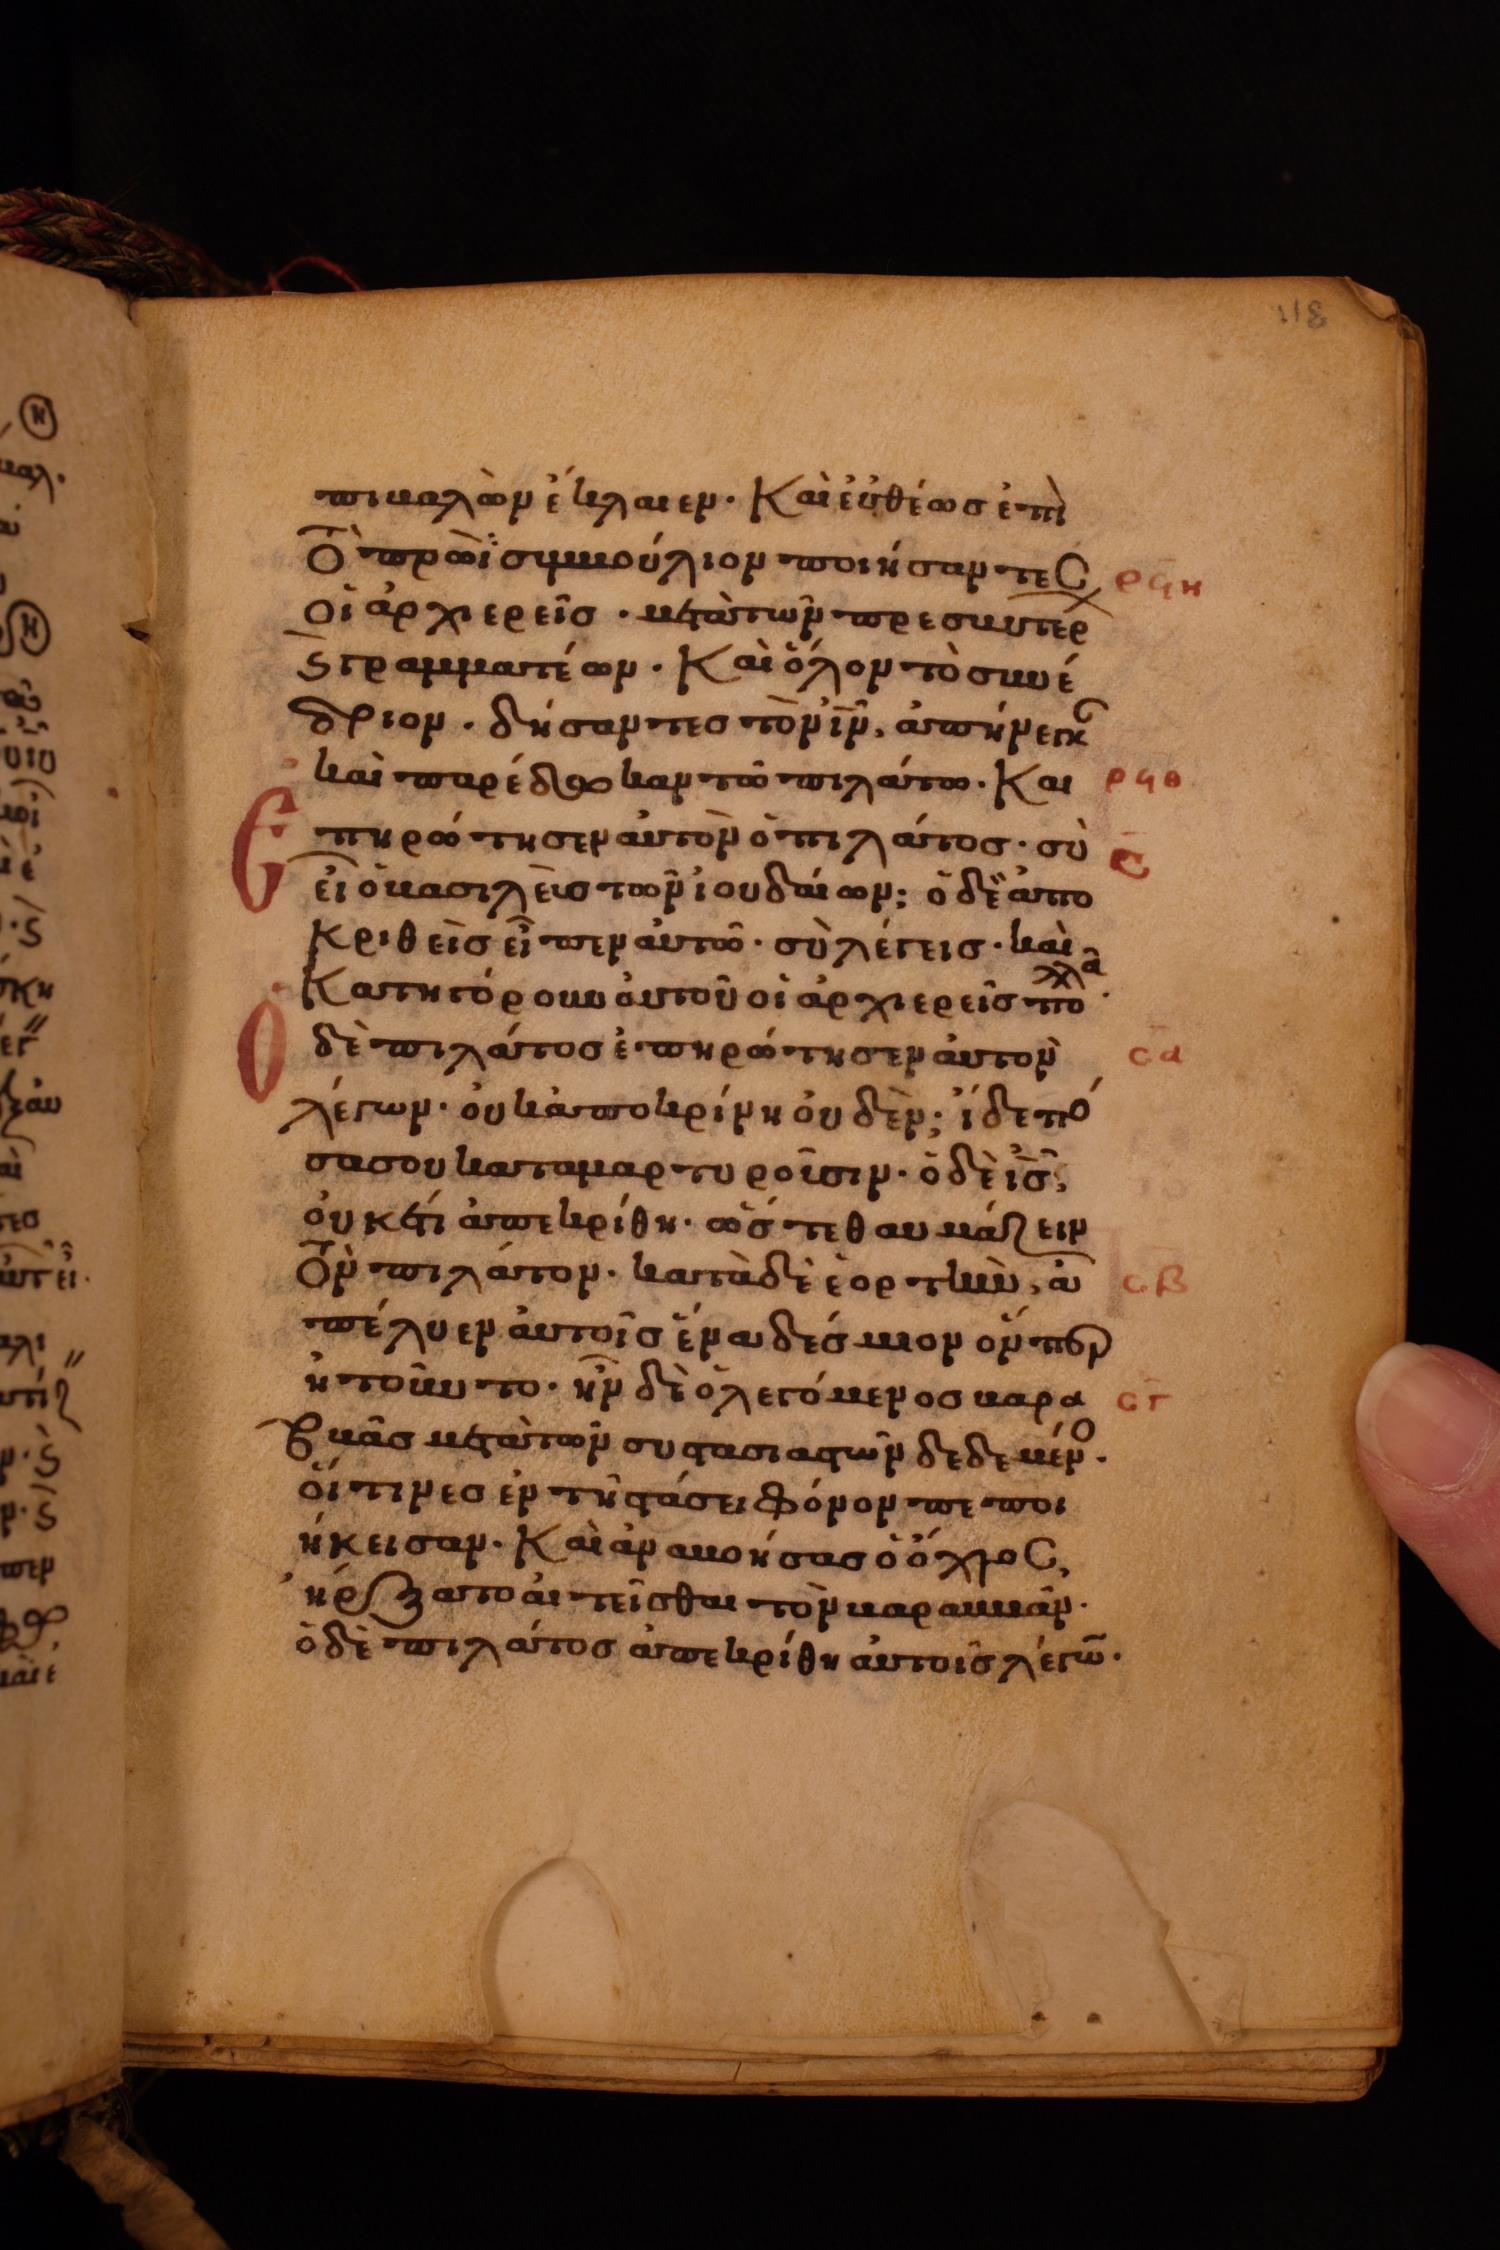 118
πιβαλὼν ἔκλαιεν· Καὶ εὐθέως ἐπὶ
τὸ πρωῒ συμβούλιον ποιήσαντες ρϟη
οἱ ἀρχιερεῖς· μετὰ τῶν πρεσβυτέρ
ϛ γραμματέων· Καὶ ὅλον τὸ συνέ
δριον· δήσαντες τὸν ιν, ἀπήνεγκ
καὶ παρέδωκαν τῶ πιλάτω· Και ρϟθ
Επηρώτησεν αὐτὸν ὁ πιλάτος· σὺ ς
εἶ ὁ βασιλεὺς τῶν ἰουδαίων; ὁ δὲ ἀπο
κριθεὶς εἶπεν αὐτῶ· σὺ λέγεις· καὶ
Κατηγόρουν αὐτοῦ οἱ ἀρχιερεῖς πολλά·
Ο δὲ πιλάτος ἐπηρώτησεν αὐτὸν σα
λέγων· οὐκ ἀποκρίνη οὐδὲν; ἴδε πό
σα σου καταμαρτυροῦσιν· ὁ δὲ ις,
οὐκέτι ἀπεκρίθη· ὥστε θαυμάζειν
τὸν πιλάτον· κατὰ δὲ ἑορτὴν, ἀ σβ
πέλυεν αὐτοῖς ἕνα δέσμιον ὅνπερ
ητοῦντο· ἦν δὲ ὁ λεγόμενος βαρα σγ
ββᾶς μετὰ τῶν συστασιαστῶν δεδεμένο·
οἵτινες ἐν τῆ στάσει φόνον πεποι
ήκεισαν· Καὶ ἀναβοήσας ὁ ὄχλος,
ἤρξατο αἰτεῖσθαι τὸν βαραββᾶν·
ὁ δὲ πιλάτος ἀπεκρίθη αὐτοῖς λέγω·